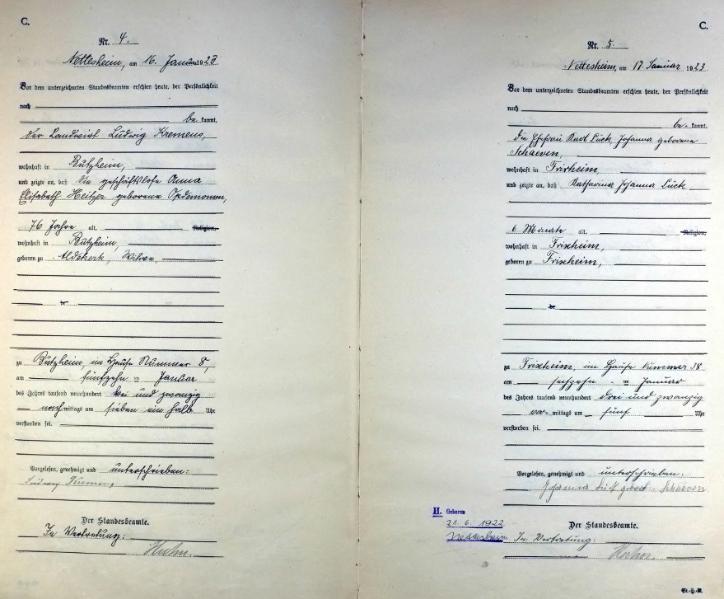 C.
Nr. 4.
Nettesheim, am 16. Januar 1923
Vor dem unterzeichneten Standesbeamten erschien heute, der Persönlichkeit
nach
be kannt,
der Landwirt Ludwig
wohnhaft in Butzheim,
und zeigte an, daß die geschäftslose Anna
Elisabeth geborene
76 Jahre alt, Religion,
wohnhaft in Butzheim,
geboren zu Aldekerk, Witwe
zu Butzheim, im Hause Nummer 8,
am fünfzehn ten Januar
des Jahres tausend neunhundert drei und zwanzig
nachmittags um sieben ein halb Uhr
verstorben sei.
Vorgelesen, genehmigt und unterschrieben:
Ludwig
Der Standesbeamte.
In Vertretung:
C.
Nr. 5.
Nettesheim, am 17 Januar 1923
Vor dem unterzeichneten Standesbeamten erschien heute, der Persönlichkeit
nach
be kannt,
die Ehefrau Lück, Johanna geborene
Schaeven,
wohnhaft in Frixheim,
und zeigte an, daß Katharina Johanna Lück
6 Monate alt, Religion,
wohnhaft in Frixheim,
geboren zu Frixheim,
zu Frixheim, im Hause Nummer 38
am sechzehn ten Januar
des Jahres tausend neunhundert drei und zwanzig
vor mittags um fünf Uhr
verstorben sei.
Vorgelesen, genehmigt und unterschrieben:
Johanna Lück geb. Schaeven
H. Geboren
21. 6. 1922
Nettesheim
Der Standesbeamte.
In Vertretung: